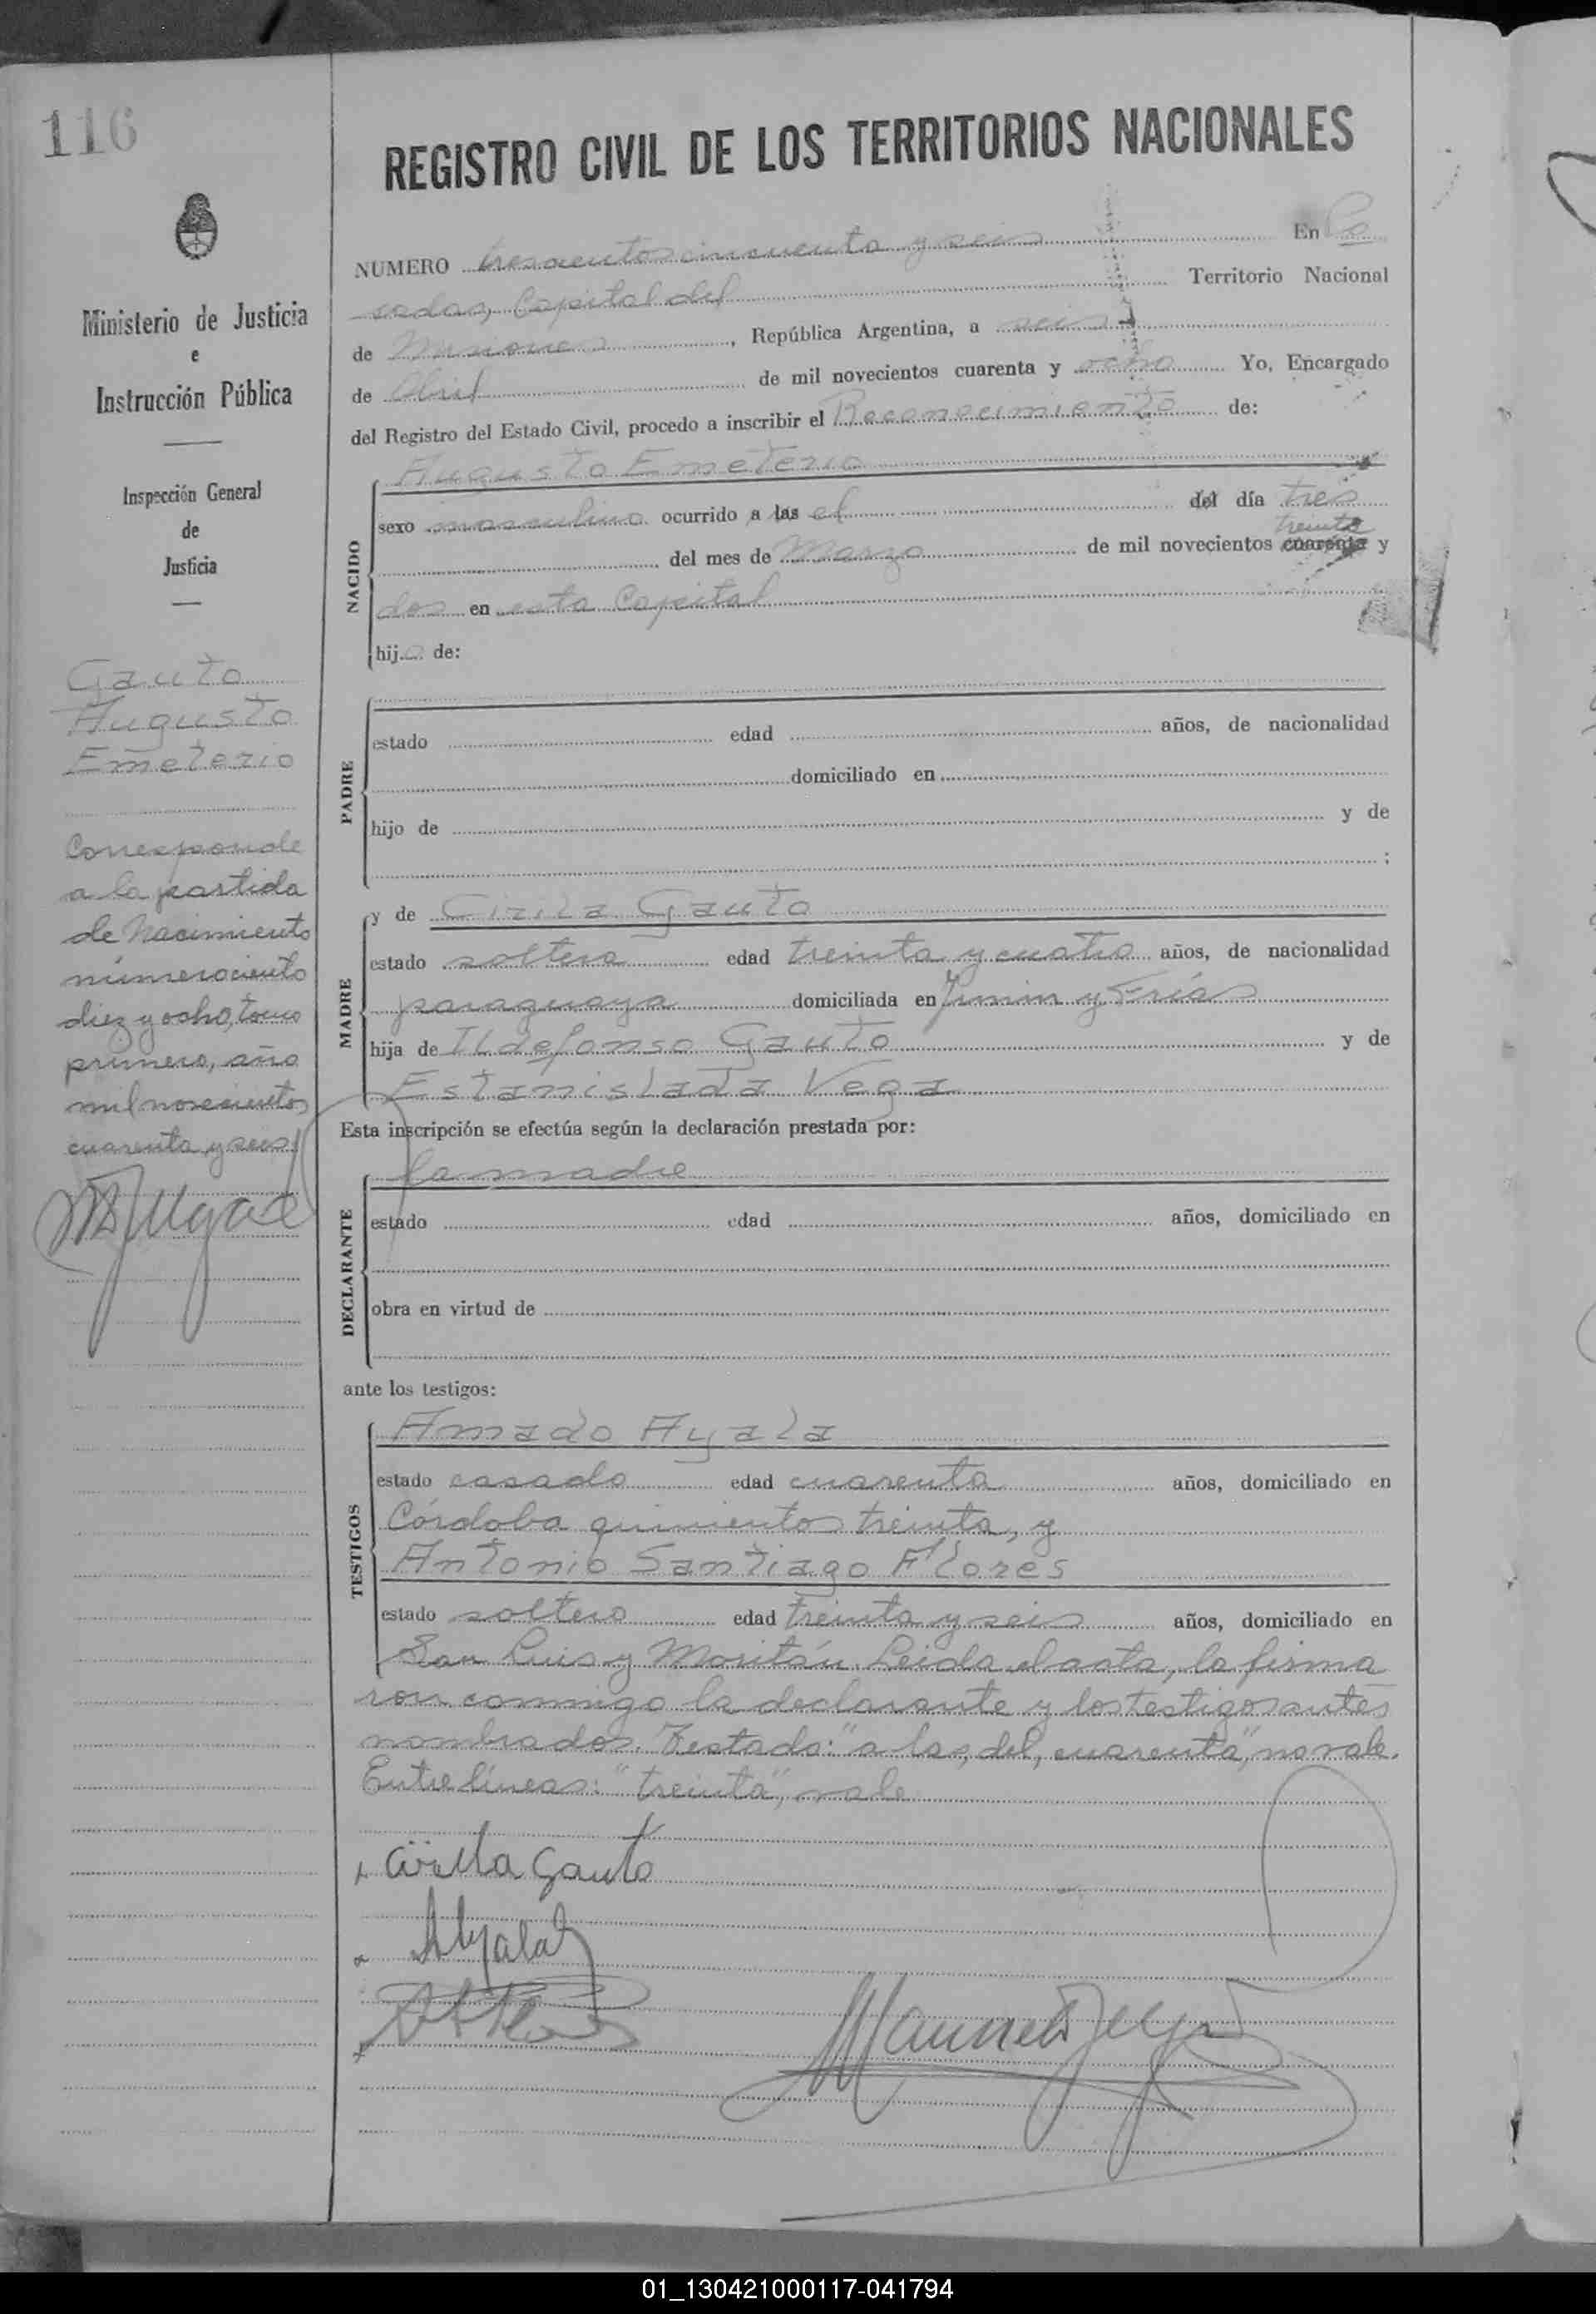 116
REGISTRO CIVIL DE LOS TERRITORIOS NACIONALES
Ministerio de Justicia
e
Instrucción Pública
Inspección General
de
Justicia
Gauto
Augusto
Emeterio
Corresponde
a la partida
de Nacimiento
número ciento
diez y ocho, tomo
primero, año
mil novecientos
cuarenta y seis
NUMERO trescientos cincuenta y seis En Po
sadas, Capital del Territorio Nacional
de Misiones, República Argentina, a seis
de Abril de mil novecientos cuarenta y ocho Yo, Encargado
del Registro del Estado Civil, procedo a inscribir el Reconocimiento de:
Augusto Emeterio
NACIDO
sexo masculino ocurrido a las el del día tres
treinta
del mes de Marzo de mil novecientos cuarenta y
dos en esta Capital
hijo de:
PADRE
estado edad años, de nacionalidad
domiciliado en
hijo de y de
;
MADRE
y de Cirila Gauto
estado soltera edad treinta y cuatro años, de nacionalidad
paraguaya domiciliada en Junin y Frías
hija de Ildefonso Gauto y de
Estanislada Vega
Esta inscripción se efectúa según la declaración prestada por:
la madre
DECLARANTE
estado edad años, domiciliado en
obra en virtud de
ante los testigos:
TESTIGOS
Amado Ayala
estado casado edad cuarenta años, domiciliado en
Córdoba quinientos treinta, y
Antonio Santiago Flores
estado soltero edad treinta y seis años, domiciliado en
San Luis y Moritán. Leida el acta, la firma
ron conmigo la declarante y los testigos antes
nombrados. Testado: "a las, del, cuarenta", no vale.
Entre líneas: "treinta", vale
Cirila Gauto
AAyala
01_130421000117-041794